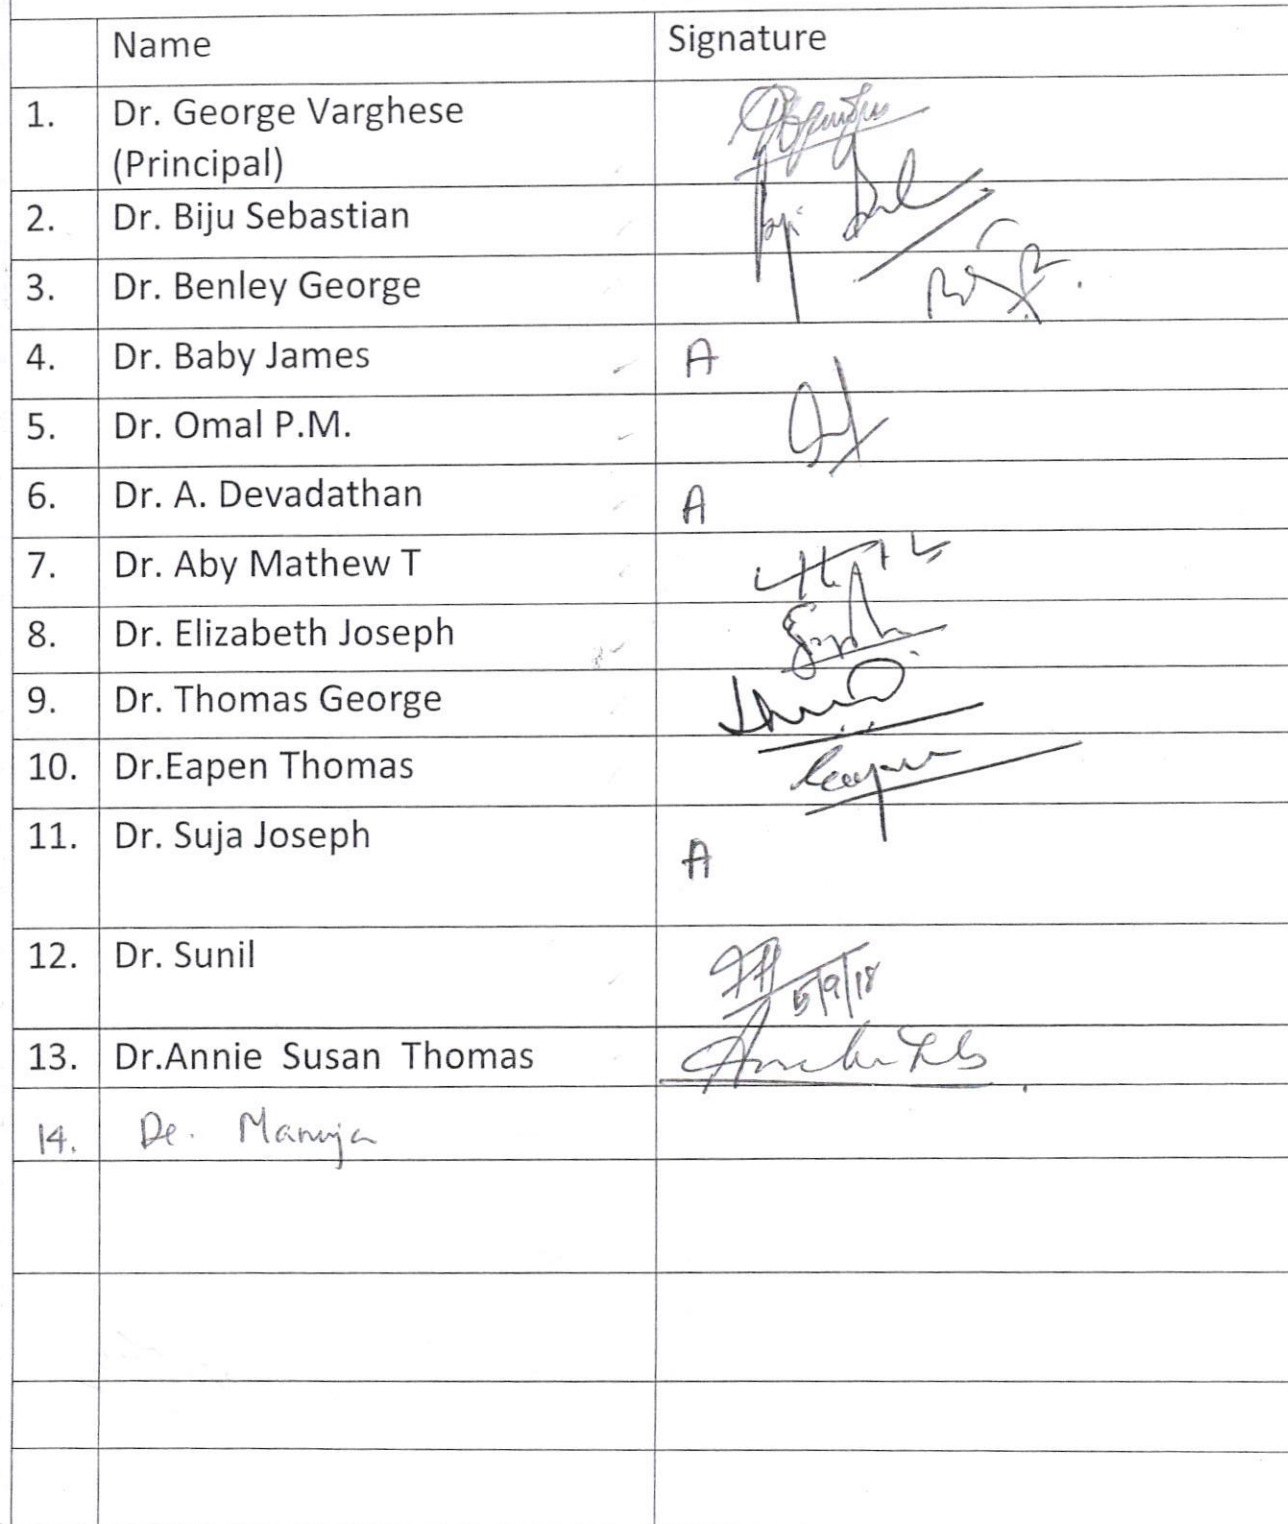 Name Signature
1. Dr. George Varghese
(Principal)
2. Dr. Biju Sebastian
3. Dr. Benley George
4. Dr. Baby James A
5. Dr. Omal P.M.
6. Dr. A. Devadathan A
7. Dr. Aby Mathew T
8. Dr. Elizabeth Joseph
9. Dr. Thomas George
10. Dr.Eapen Thomas
11. Dr. Suja Joseph A
12. Dr. Sunil 5/9/18
13. Dr.Annie Susan Thomas
14. De. Manuja